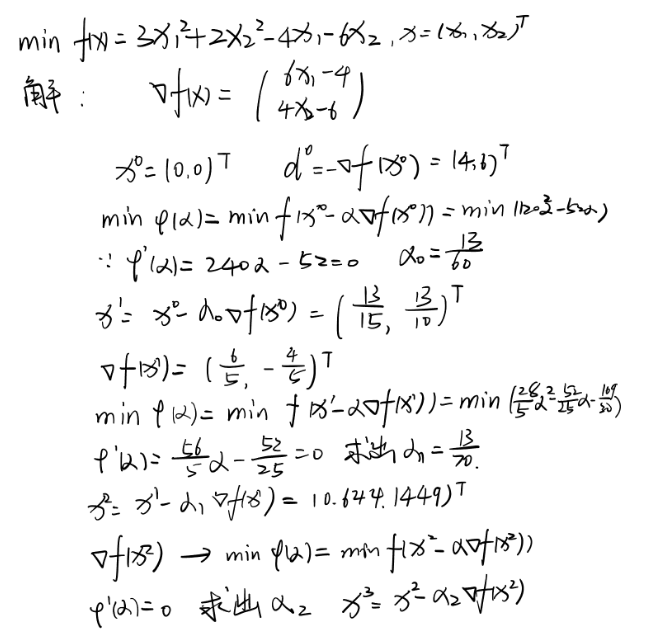 min f(x) = 3x₁² + 2x₂² - 4x₁ - 6x₂ , x = (x₁, x₂)ᵀ
解: ∇f(x) = ( 6x₁-4 4x₂-6 )
x⁰ = (0.0)ᵀ d⁰ = -∇f(x⁰) = (4,6)ᵀ
min φ(α) = min f(x⁰ - α∇f(x⁰)) = min (120α² - 52α)
∵ φ'(α) = 240α - 52 = 0 α₀ = 13/60
x¹ = x⁰ - α₀∇f(x⁰) = ( 13/15, 13/10 )ᵀ
∇f(x¹) = ( 6/5, -4/5 )ᵀ
min φ(α) = min f(x¹ - α∇f(x¹)) = min ( 28/5 α² - 52/25 α - 169/30 )
φ'(α) = 56/5 α - 52/25 = 0 求出 α₁ = 13/70.
x² = x¹ - α₁∇f(x¹) = (0.644, 1.449)ᵀ
∇f(x²) → min φ(α) = min f(x² - α∇f(x²))
φ'(α) = 0 求出 α₂ x³ = x² - α₂∇f(x²)